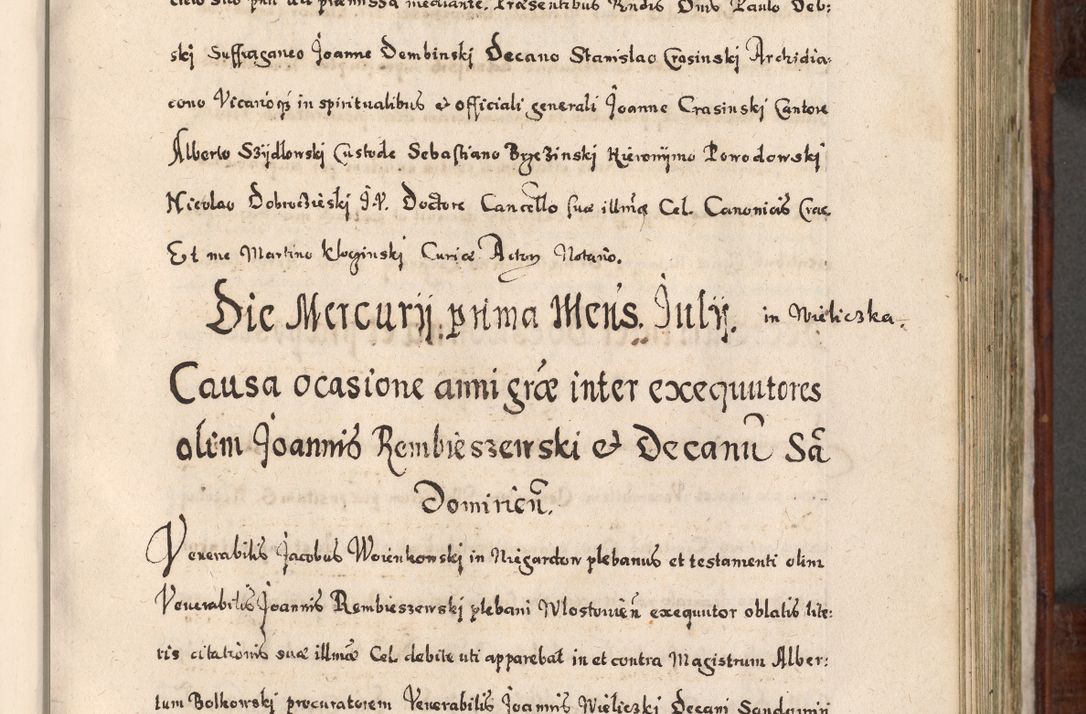 præmissa mediante. Præsentibus Rndis Dnis Paulo Deb:
ski Suffraganeo Joanne Dembinski Decano Stanislao Crasinski Archidia:
cono Vicarioqs in spiritualibus et officiali generali Joanne Crasinski Cantore
Alberto Szijdlowski Custode Sebastiano Brzezinski Hieronijmo Powodowski
Nicolao Dobroczieški J.V. Doctore Cancello suæ illmæ Cel. Canonicis Crac.
Et me Martino Kłoczinski Curiæ Actor Notario.
Die Mercurij prima Mens. Julij. in Wieliczka.
Causa ocasione anni græ inter exequutores
olim Joannis Rembieszewski et Decanũ Sã
Domirieñ.
Venerabilis Jacobus Woienkowski in Niegardow plebanus et testamenti olim
Venerabilis Joannis Rembieszewski plebani Wlostowieñ exequutor oblatis lite:
ris citationis suæ illmæ Cel. debite uti apparebat in et contra Magistrum Alber:
tum Bolkowski procuratorem Venerabilis Joannis Wieliczki Decani Sandomirij